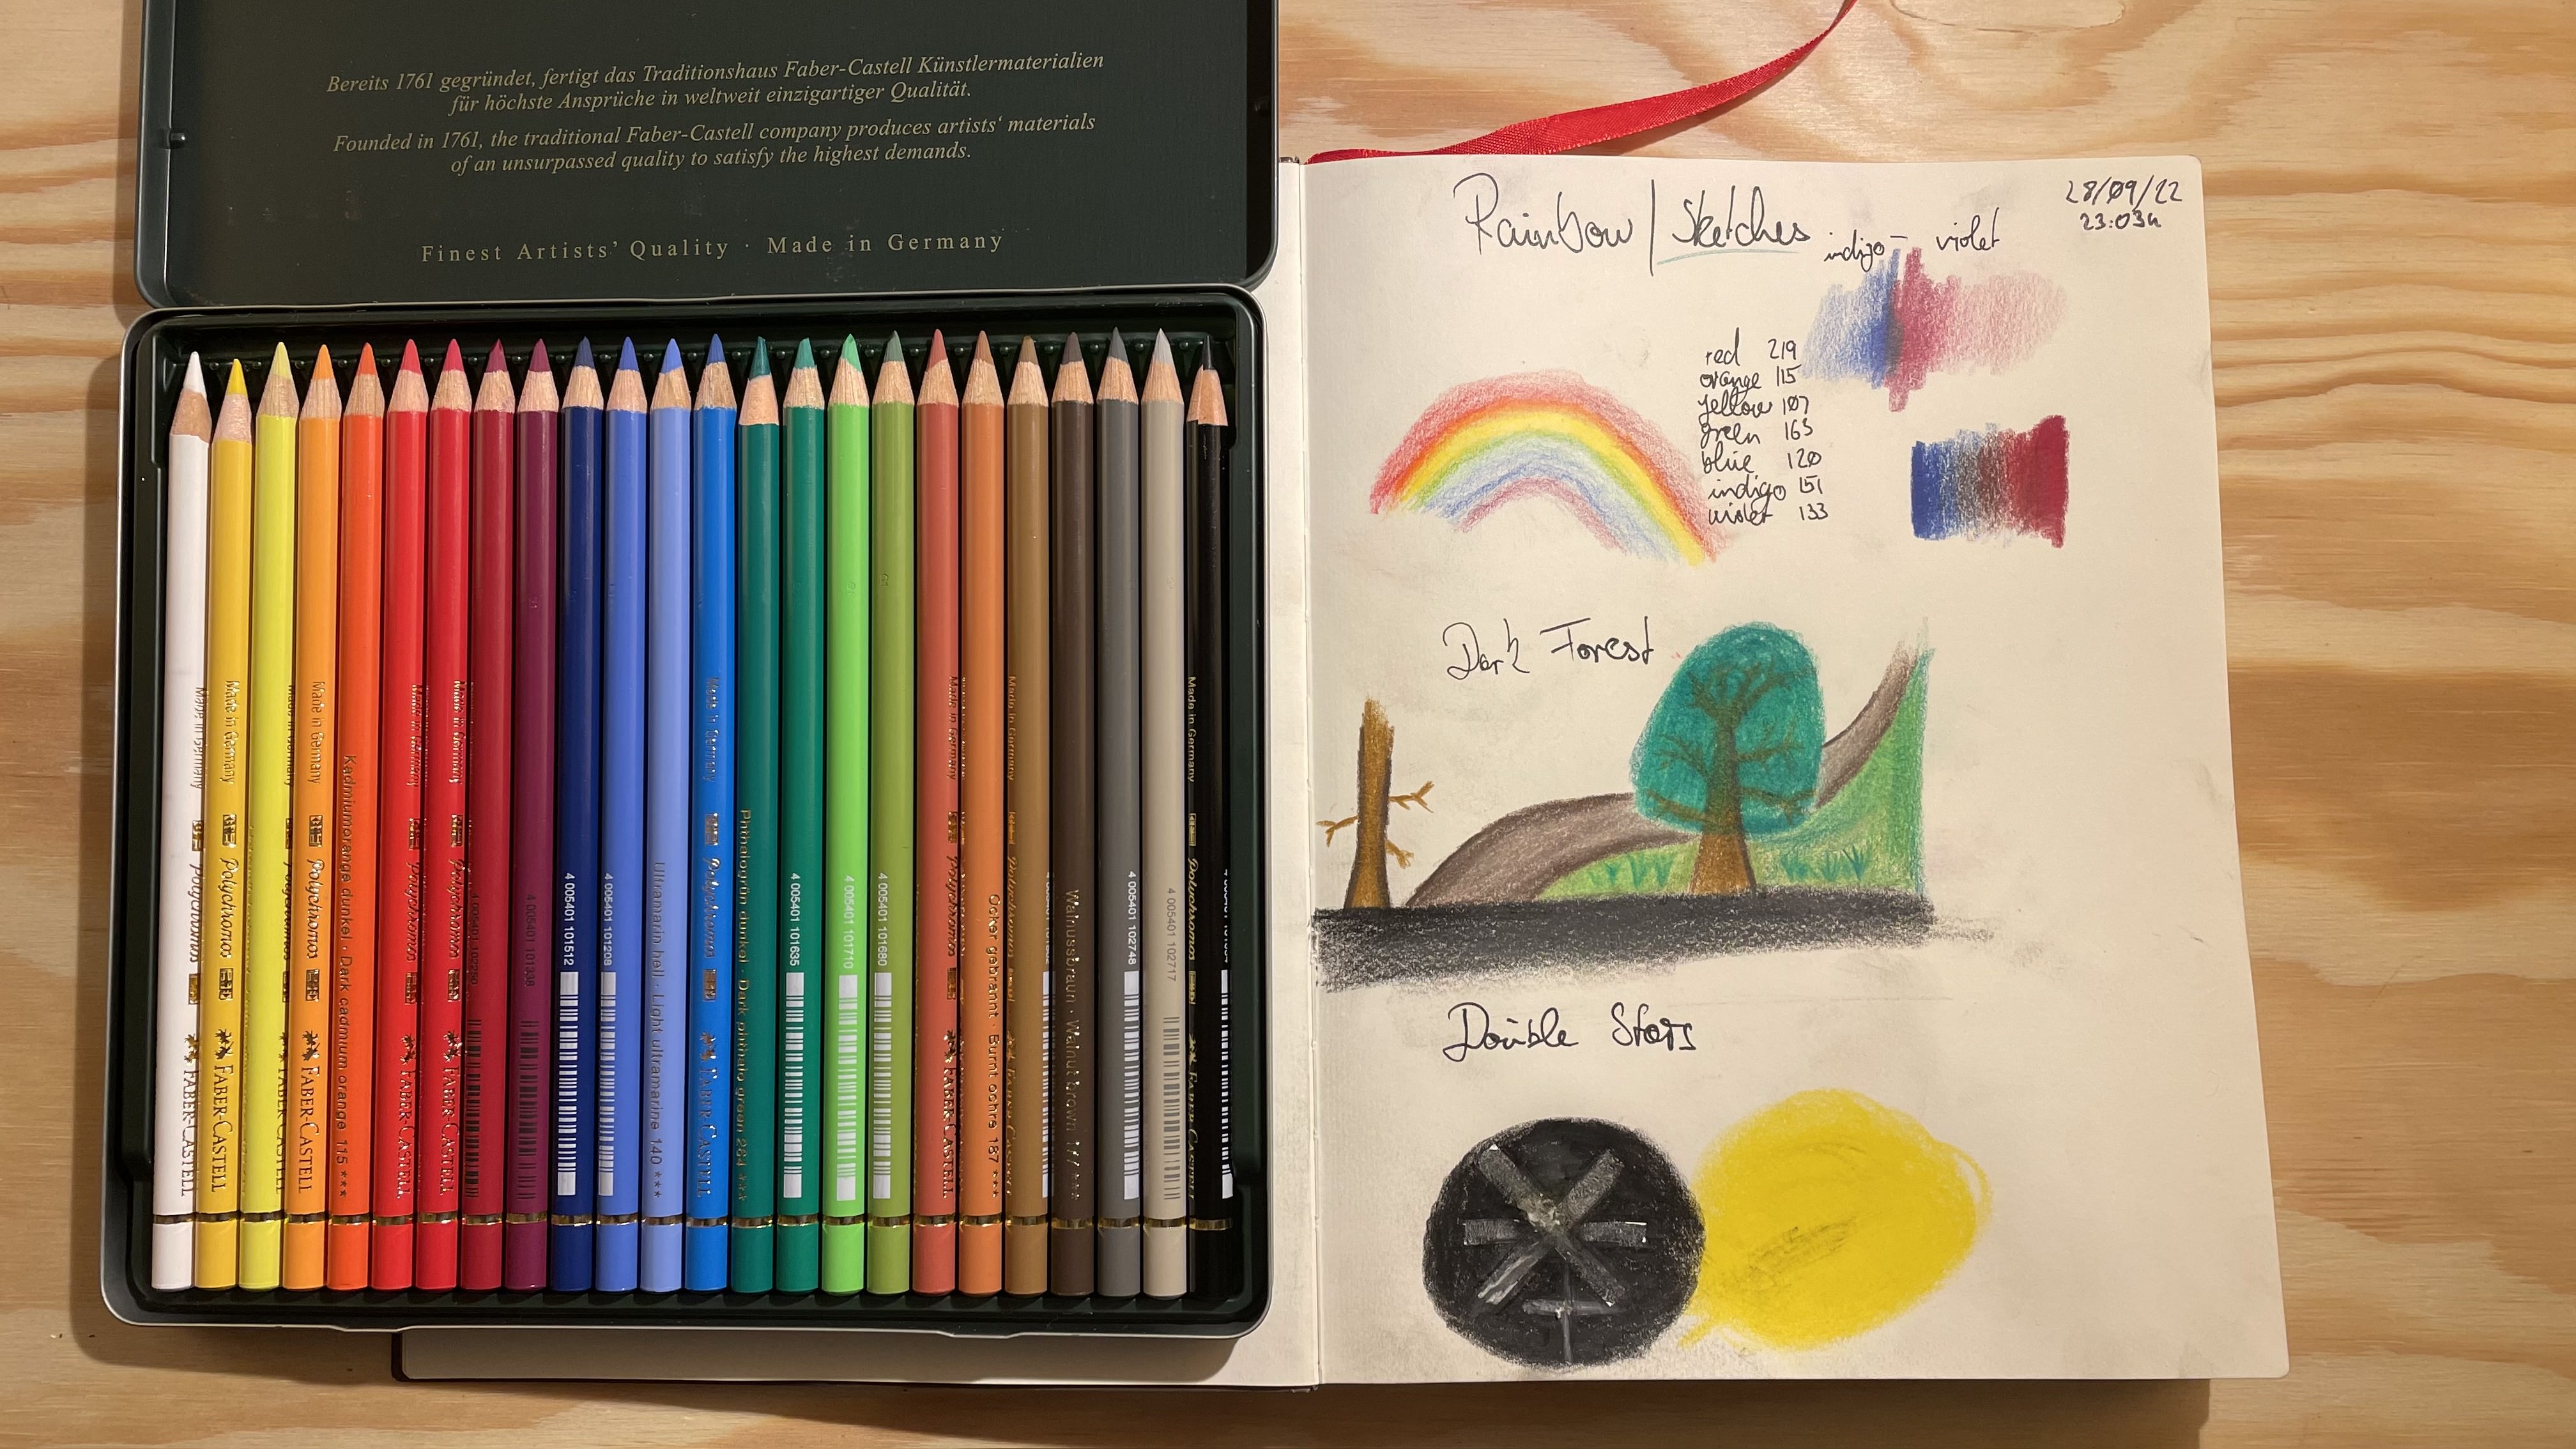 Bereits 1761 gegründet, fertigt das Traditionshaus Faber-Castell Künstlermaterialien
für höchste Ansprüche in weltweit einzigartiger Qualität.
Founded in 1761, the traditional Faber-Castell company produces artists‘ materials
of an unsurpassed quality to satisfy the highest demands.
Finest Artists’ Quality · Made in Germany
Made in Germany Polychromos FABER-CASTELL
Made in Germany Polychromos FABER-CASTELL
Made in Germany Polychromos FABER-CASTELL
Made in Germany Polychromos FABER-CASTELL
Kadmiumorange dunkel · Dark cadmium orange 115 ***
Made in Germany Polychromos FABER-CASTELL
Made in Germany Polychromos FABER-CASTELL
4 005401 101338
4 005401 101512
4 005401 101208
Ultramarin hell · Light ultramarine 140 ***
Made in Germany Polychromos FABER-CASTELL
Phthalogrün dunkel · Dark phthalo green 264 ***
4 005401 101635
4 005401 101710
4 005401 101680
Made in Germany Polychromos FABER-CASTELL
Ocker gebrannt · Burnt ochre 187 ***
Made in Germany Polychromos FABER-CASTELL
Walnussbraun · Walnut brown 177 ***
4 005401 102748
4 005401 102717
Made in Germany Polychromos FABER-CASTELL
Rainbow | Sketches
28/09/22
23:03h
indigo - violet
red 219
orange 115
yellow 107
green 163
blue 120
indigo 151
violet 133
Dark Forest
Double Stars